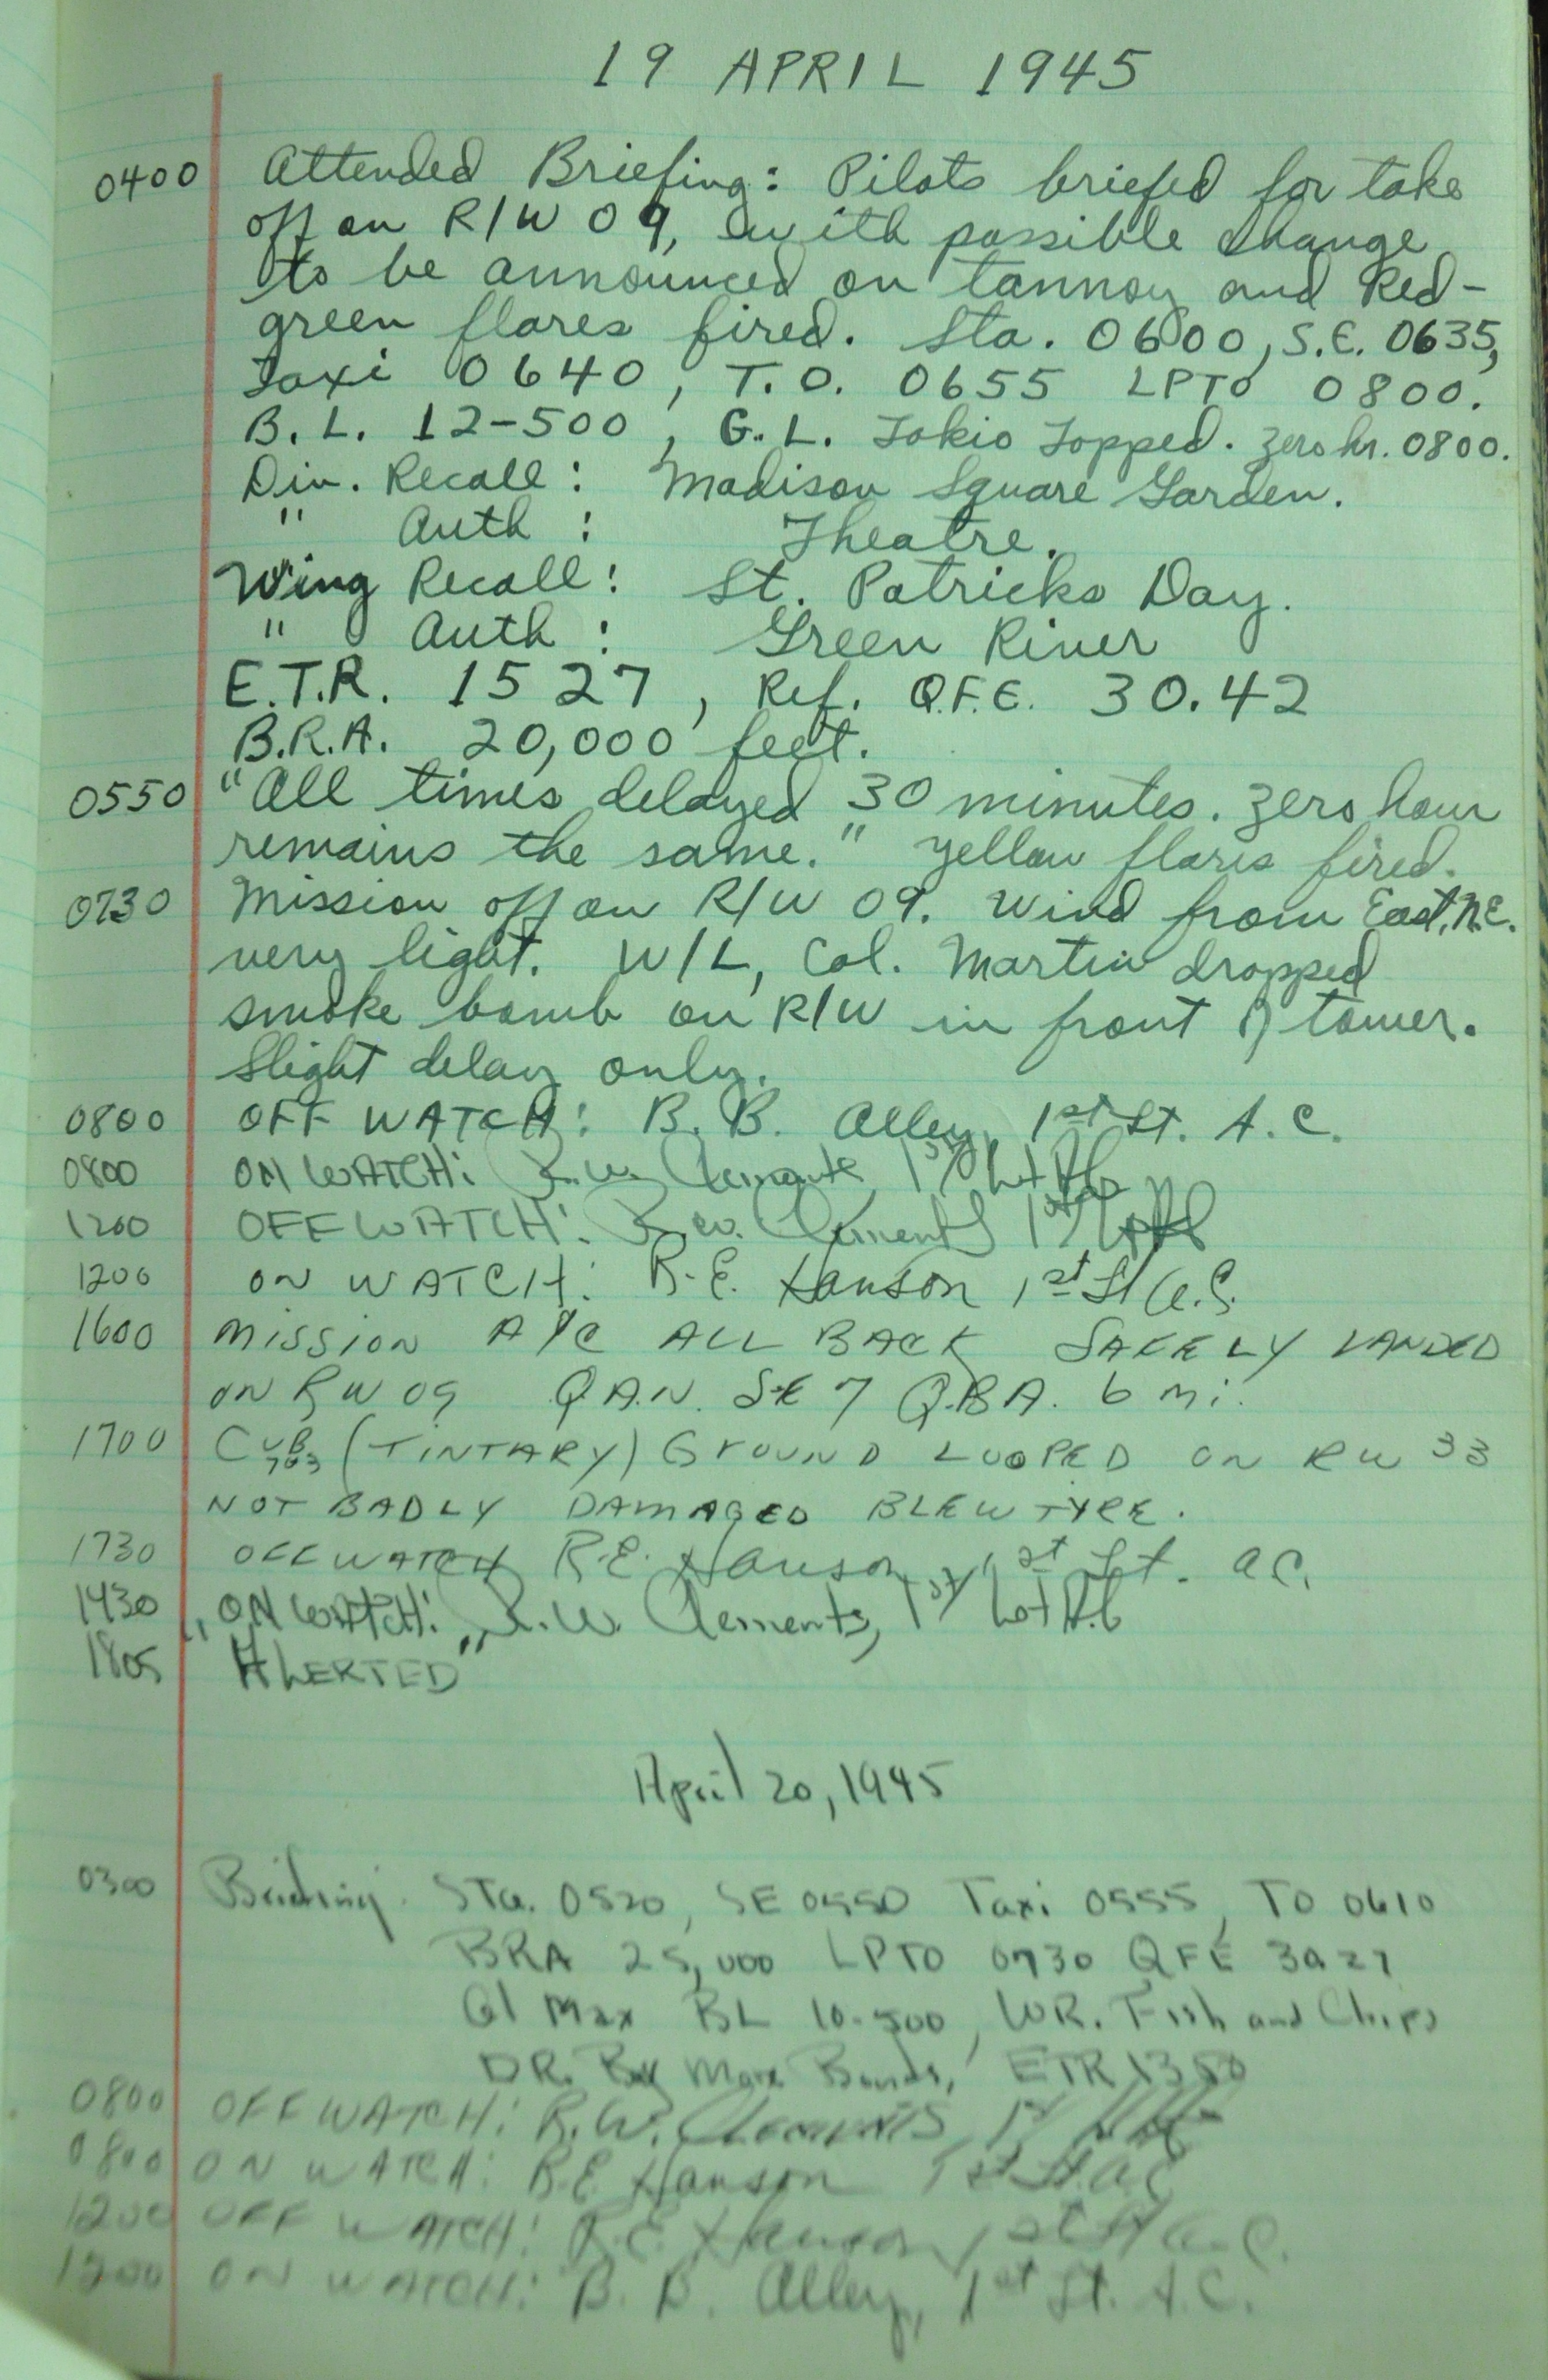 19 APRIL 1945
0400 Attended Briefing: Pilots briefed for take
off on R/W 09, with possible change
to be announced on tannoy and Red-
green flares fired. Sta. 0600, S.E. 0635,
Taxi 0640, T.O. 0655 LPTO 0800.
B.L. 12-500, G.L. Tokio Topped. Zero hr. 0800.
Div. Recall: Madison Square Garden.
" Auth: Theatre.
Wing Recall: St. Patricks Day.
" Auth: Green River
E.T.R. 1527, Ref. Q.F.E. 30.42
B.R.A. 20,000 feet.
0550 "All times delayed 30 minutes. Zero hour
remains the same." Yellow flares fired.
0730 Mission off on R/W 09. Wind from East, N.E.
very light. W/L, Col. Martin dropped
smoke bomb on R/W in front of tower.
Slight delay only.
0800 OFF WATCH: B. B. Alley, 1st Lt. A.C.
0800 ON WATCH: R.W. Clements 1st Lt
1200 OFF WATCH: R.W. Clements 1st Lt
1200 ON WATCH: R.E. Hanson 1st Lt A.C.
1600 MISSION A/C ALL BACK SAFELY LANDED
ON RW 09 Q.A.N. SE 7 Q.B.A. 6 mi.
1700 CUB 763 (TINTARY) GROUND LOOPED ON RW 33
NOT BADLY DAMAGED BLEW TYRE.
1730 OFF WATCH R.E. Hanson 1st Lt. A.C.
1430 ON WATCH: R.W. Clements, 1st Lt A.C
1805 "ALERTED"
April 20, 1945
0300 Briefing Sta. 0520, SE 0550 Taxi 0555, TO 0610
BRA 25,000 LPTO 0730 QFE 30.27
Gl Max BL 10-500, WR. Fish and Chips
DR. Buy More Bonds, ETR 1350
0800 OFF WATCH: R.W. Clements 1st
0800 ON WATCH: R.E. Hanson 1st Lt. A.C
1200 OFF WATCH: R.E. Hanson 1st Lt A.C.
1200 ON WATCH: B. B. Alley, 1st Lt. A.C.